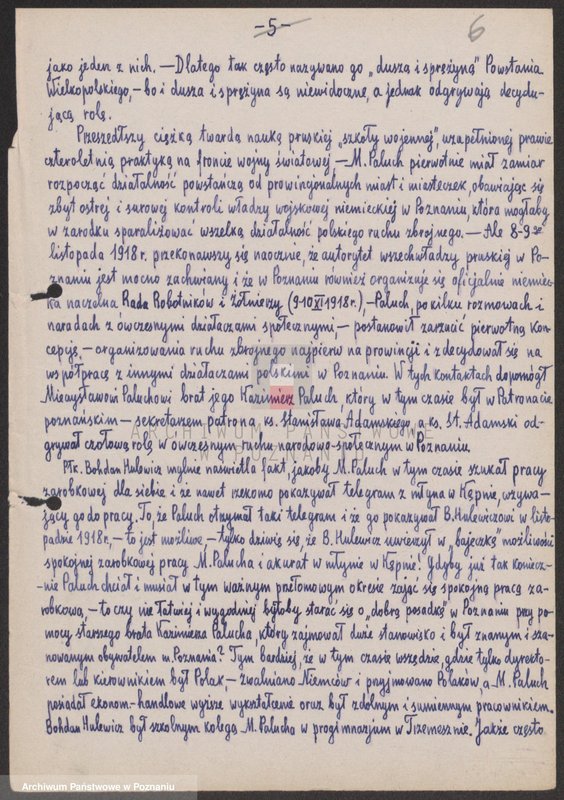 -5-
6
jako jeden z nich. — Dlatego tak często nazywano go „duszą i sprężyną” Powstania
Wielkopolskiego, — bo i dusza i sprężyna są niewidoczne, a jednak odgrywają decydu-
jącą rolę.
Przeszedłszy ciężką twardą nauką pruskiej „szkoły wojennej”, uzupełnionej prawie
czteroletnią praktyką na froncie wojny światowej — M. Paluch pierwotnie miał zamiar
rozpocząć działalność powstańczą od prowincjonalnych miast i miasteczek, obawiając się
zbyt ostrej i surowej kontroli władzy wojskowej niemieckiej w Poznaniu, która mogłaby
w zarodku sparaliżować wszelką działalność polskiego ruchu zbrojnego. — Ale 8-9
listopada 1918 r. przekonawszy się naocznie, że autorytet wszechwładzy pruskiej w Po-
znaniu jest mocno zachwiany i że w Poznaniu również organizuje się oficjalnie niemiec-
ka naczelna Rada Robotników i Żołnierzy (9-10 XI 1918 r.), — Paluch po kilku rozmowach i
naradach z ówczesnymi działaczami społecznymi, — postanowił zarzucić pierwotną kon-
cepcję, — organizowania ruchu zbrojnego najpierw na prowincji i zdecydował się na
współpracę z innymi działaczami polskimi w Poznaniu. W tych kontaktach dopomógł
Mieczysławowi Paluchowi brat jego Kazimierz Paluch, który w tym czasie był w Patronacie
poznańskim — sekretarzem patrona ks. Stanisława Adamskiego, a ks. St. Adamski od-
grywał czołową rolę w ówczesnym ruchu narodowo-społecznym w Poznaniu.
Płk. Bohdan Hulewicz mylnie naświetla fakt, jakoby M. Paluch w tym czasie szukał pracy
zarobkowej dla siebie i że nawet rzekomo pokazywał telegram z młyna w Kępnie, wzywa-
jący go do pracy. To, że Paluch otrzymał taki telegram i że go pokazywał B. Hulewiczowi w listo-
padzie 1918 r., — to jest możliwe — tylko dziwię się, że B. Hulewicz uwierzył w „bajeczkę” możliwości
spokojnej zarobkowej pracy M. Palucha i akurat w młynie w Kępnie! Gdyby już tak koniecz-
-nie Paluch chciał i musiał w tym ważnym przełomowym okresie zająć się spokojną pracą za-
robkową, — to czy nie łatwiej i wygodniej byłoby starać się o „dobrą posadkę” w Poznaniu przy po-
mocy starszego brata Kazimierza Palucha, który zajmował duże stanowisko i był znanym i sza-
nowanym obywatelem m. Poznania? Tym bardziej, że w tym czasie wszędzie, gdzie tylko dyrekto-
rem lub kierownikiem był Polak, — zwalniano Niemców i przyjmowano Polaków, a M. Paluch
posiadał ekonom.-handlowe wyższe wykształcenie oraz był zdolnym i sumiennym pracownikiem.
Bohdan Hulewicz był szkolnym kolegą M. Palucha w progimnazjum w Trzemesznie. Jakże często
ARCHIWUM PAŃSTWOWE
W POZNANIU
Archiwum Państwowe w Poznaniu